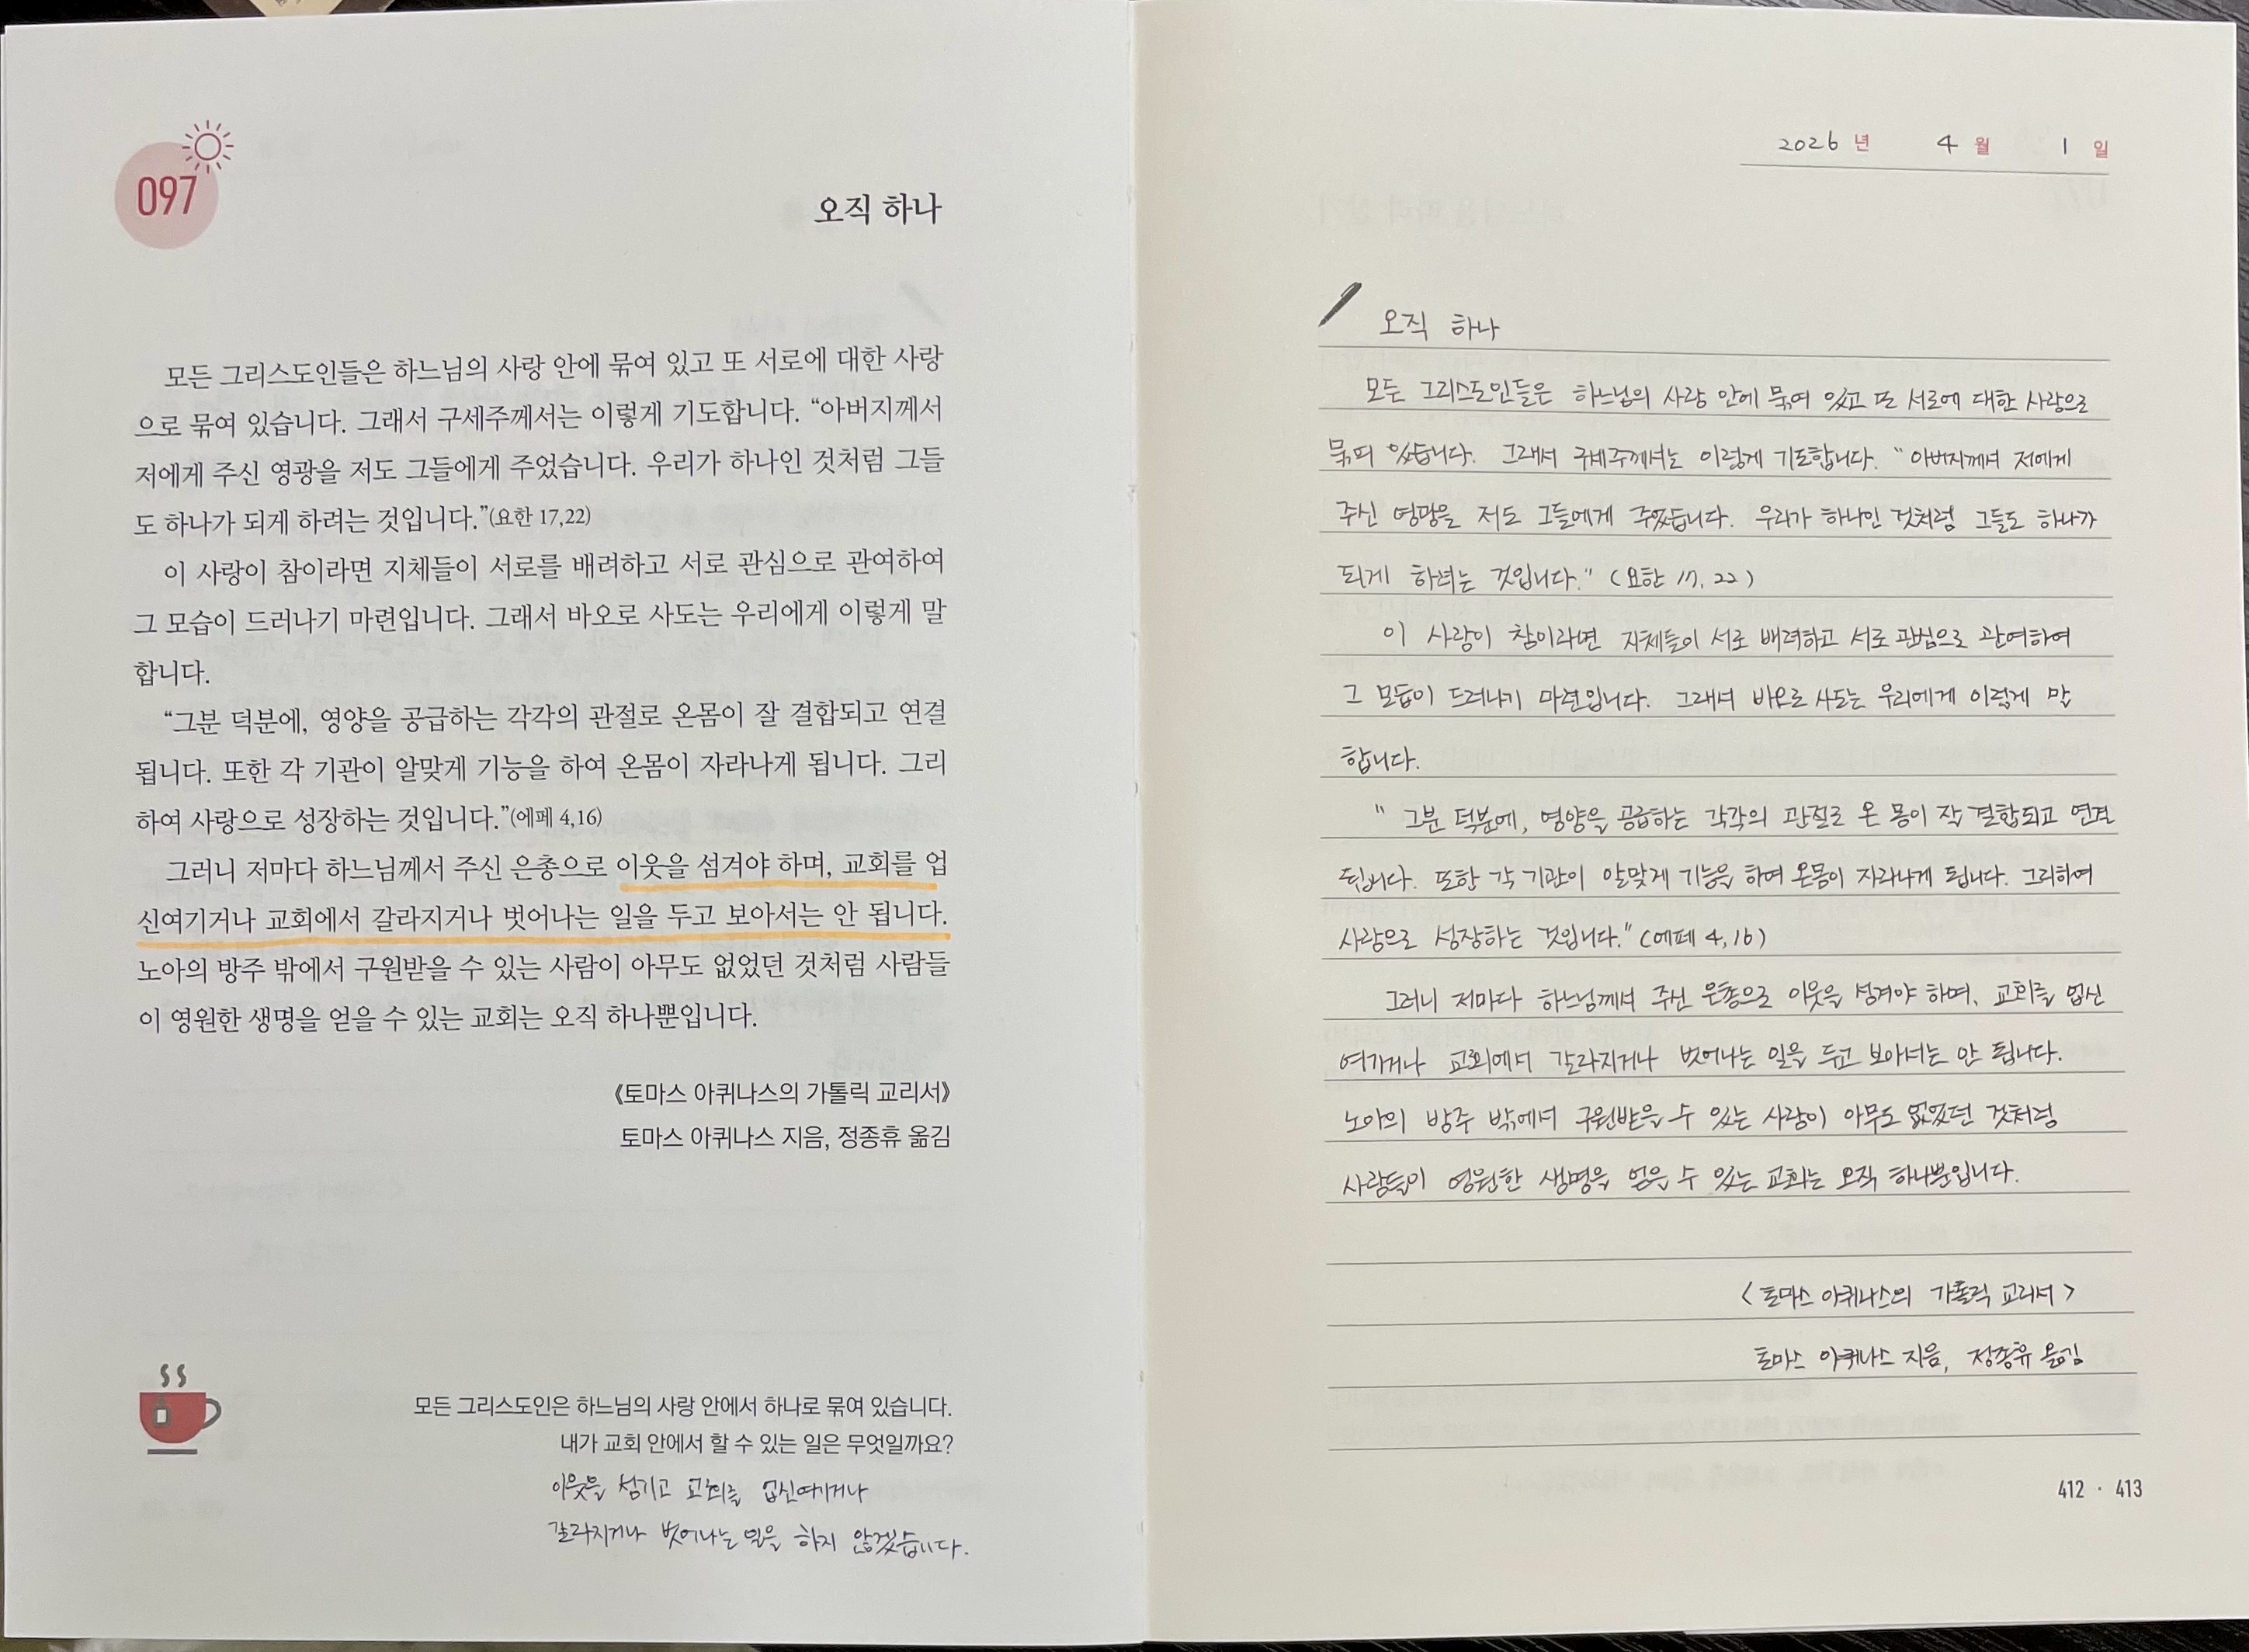 097
오직 하나
모든 그리스도인들은 하느님의 사랑 안에 묶여 있고 또 서로에 대한 사랑
으로 묶여 있습니다. 그래서 구세주께서는 이렇게 기도합니다. “아버지께서
저에게 주신 영광을 저도 그들에게 주었습니다. 우리가 하나인 것처럼 그들
도 하나가 되게 하려는 것입니다.”(요한 17,22)
이 사랑이 참이라면 지체들이 서로를 배려하고 서로 관심으로 관여하여
그 모습이 드러나기 마련입니다. 그래서 바오로 사도는 우리에게 이렇게 말
합니다.
“그분 덕분에, 영양을 공급하는 각각의 관절로 온몸이 잘 결합되고 연결
됩니다. 또한 각 기관이 알맞게 기능을 하여 온몸이 자라나게 됩니다. 그리
하여 사랑으로 성장하는 것입니다.”(에페 4,16)
그러니 저마다 하느님께서 주신 은총으로 이웃을 섬겨야 하며, 교회를 업
신여기거나 교회에서 갈라지거나 벗어나는 일을 두고 보아서는 안 됩니다.
노아의 방주 밖에서 구원받을 수 있는 사람이 아무도 없었던 것처럼 사람들
이 영원한 생명을 얻을 수 있는 교회는 오직 하나뿐입니다.
《토마스 아퀴나스의 가톨릭 교리서》
토마스 아퀴나스 지음, 정종휴 옮김
모든 그리스도인은 하느님의 사랑 안에서 하나로 묶여 있습니다.
내가 교회 안에서 할 수 있는 일은 무엇일까요?
이웃을 섬기고 교회를 업신여기거나
갈라지거나 벗어나는 일을 하지 않겠습니다.
2026 년 4 월 1 일
오직 하나
모든 그리스도인들은 하느님의 사랑 안에 묶여 있고 또 서로에 대한 사랑으로
있습니다. 그래서 구세주께서는 이렇게 기도합니다. “아버지께서 저에게
주신 영광을 저도 그들에게 주었습니다. 우리가 하나인 것처럼 그들도 하나가
되게 하려는 것입니다.” (요한 17, 22)
이 사랑이 참이라면 지체들이 서로 배려하고 서로 관심으로 관여하여
그 모습이 드러나기 마련입니다. 그래서 바오로 사도는 우리에게 이렇게 말
합니다.
“그분 덕분에, 영양을 공급하는 각각의 관절로 온 몸이 잘 결합되고 연결
됩니다. 또한 각 기관이 알맞게 기능을 하여 온몸이 자라나게 됩니다. 그리하여
사랑으로 성장하는 것입니다.” (에페 4, 16)
그러니 저마다 하느님께서 주신 은총으로 이웃을 섬겨야 하며, 교회를 업신
여기거나 교회에서 갈라지거나 벗어나는 일을 두고 보아서는 안 됩니다.
노아의 방주 밖에서 구원받을 수 있는 사람이 아무도 없었던 것처럼
사람들이 영원한 생명을 얻을 수 있는 교회는 오직 하나뿐입니다.
<토마스 아퀴나스의 가톨릭 교리서>
토마스 아퀴나스 지음, 정종휴 옮김
412 · 413